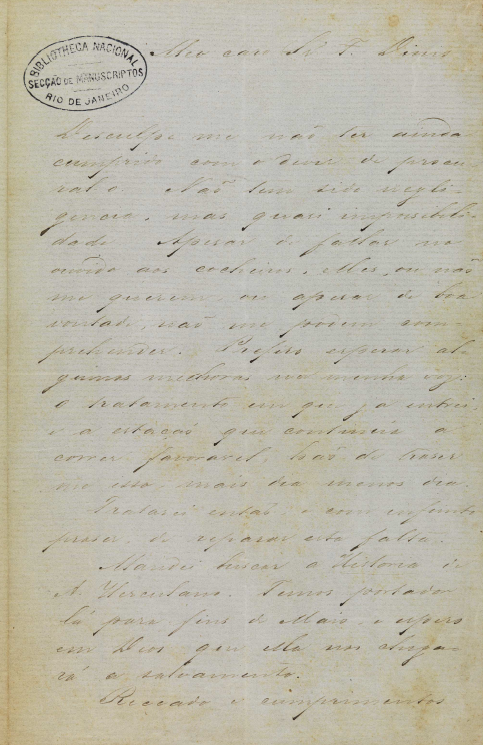 BIBLIOTHECA NACIONAL
SECÇÃO DE MANUSCRIPTOS
RIO DE JANEIRO
Meu caro Sr. F. Diniz
Desculpe me não ter ainda
cumprido com o dever de procu-
ral o. Não tem sido negli-
gencia, mas quasi impossibili-
dade. Apesar de fallar no
ouvido aos cocheiros, elles, ou não
me querem ou apesar de boa
vontade, não me podem com-
prehender. Prefiro esperar al-
gumas melhoras na minha voz:
o tratamento em que ja entrei,
e a estação que continúa a
correr favoravel, hão de traser
me isso, mais dia menos dia.
Tratarei então, e com infinito
praser, de reparar esta falta.
Mandei buscar a Historia de
A. Herculano. Temos portador
lá para fins de Maio, e espero
em Deos que ella nos chega-
rá a salvamento.
Recado e cumprimentos